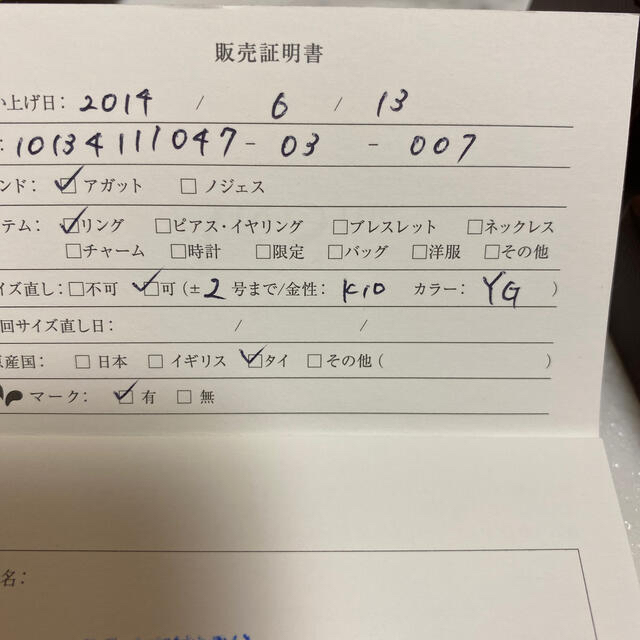 販売証明書
い上げ日： 2014 / 6 / 13
：10134111047 - 03 - 007
ンド： ☑ アガット □ ノジェス
テム： ☑リング □ピアス・イヤリング □ブレスレット □ネックレス
□チャーム □時計 □限定 □バッグ □洋服 □その他
イズ直し：□不可 ☑可（±2 号まで/金性： K10 カラー： YG ）
回サイズ直し日： / /
原産国： □ 日本 □ イギリス ☑タイ □ その他（ ）
マーク： ☑ 有 □ 無
名：